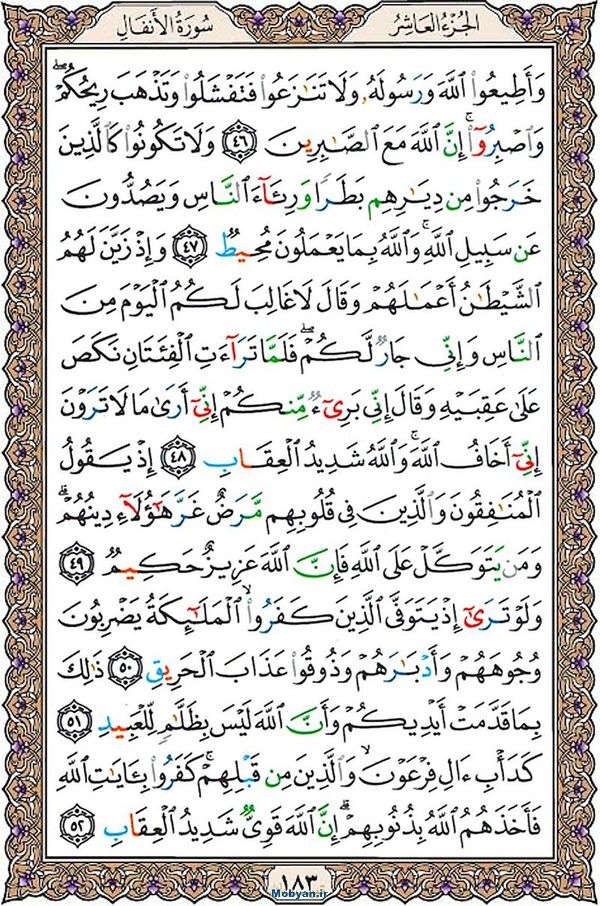 الجُزْءُ العَاشِرُ سُورَةُ الأَنفَالِ
وَأَطِيعُوا۟ ٱللَّهَ وَرَسُولَهُۥ وَلَا تَنَـٰزَعُوا۟ فَتَفْشَلُوا۟ وَتَذْهَبَ رِيحُكُمْ ۖ
وَٱصْبِرُوٓا۟ ۚ إِنَّ ٱللَّهَ مَعَ ٱلصَّـٰبِرِينَ ٤٦ وَلَا تَكُونُوا۟ كَٱلَّذِينَ
خَرَجُوا۟ مِن دِيَـٰرِهِم بَطَرًا وَرِئَآءَ ٱلنَّاسِ وَيَصُدُّونَ
عَن سَبِيلِ ٱللَّهِ ۚ وَٱللَّهُ بِمَا يَعْمَلُونَ مُحِيطٌ ٤٧ وَإِذْ زَيَّنَ لَهُمُ
ٱلشَّيْطَـٰنُ أَعْمَـٰلَهُمْ وَقَالَ لَا غَالِبَ لَكُمُ ٱلْيَوْمَ مِنَ
ٱلنَّاسِ وَإِنِّى جَارٌ لَّكُمْ ۖ فَلَمَّا تَرَآءَتِ ٱلْفِئَتَانِ نَكَصَ
عَلَىٰ عَقِبَيْهِ وَقَالَ إِنِّى بَرِىٓءٌ مِّنكُمْ إِنِّىٓ أَرَىٰ مَا لَا تَرَوْنَ
إِنِّىٓ أَخَافُ ٱللَّهَ ۚ وَٱللَّهُ شَدِيدُ ٱلْعِقَابِ ٤٨ إِذْ يَقُولُ
ٱلْمُنَـٰفِقُونَ وَٱلَّذِينَ فِى قُلُوبِهِم مَّرَضٌ غَرَّ هَـٰٓؤُلَآءِ دِينُهُمْ ۗ
وَمَن يَتَوَكَّلْ عَلَى ٱللَّهِ فَإِنَّ ٱللَّهَ عَزِيزٌ حَكِيمٌ ٤٩
وَلَوْ تَرَىٰٓ إِذْ يَتَوَفَّى ٱلَّذِينَ كَفَرُوا۟ ۙ ٱلْمَلَـٰٓئِكَةُ يَضْرِبُونَ
وُجُوهَهُمْ وَأَدْبَـٰرَهُمْ وَذُوقُوا۟ عَذَابَ ٱلْحَرِيقِ ٥٠ ذَٰلِكَ
بِمَا قَدَّمَتْ أَيْدِيكُمْ وَأَنَّ ٱللَّهَ لَيْسَ بِظَلَّـٰمٍ لِّلْعَبِيدِ ٥١
كَدَأْبِ ءَالِ فِرْعَوْنَ ۙ وَٱلَّذِينَ مِن قَبْلِهِمْ ۚ كَفَرُوا۟ بِـَٔايَـٰتِ ٱللَّهِ
فَأَخَذَهُمُ ٱللَّهُ بِذُنُوبِهِمْ ۗ إِنَّ ٱللَّهَ قَوِىٌّ شَدِيدُ ٱلْعِقَابِ ٥٢
١٨٣
Mobyan.ir